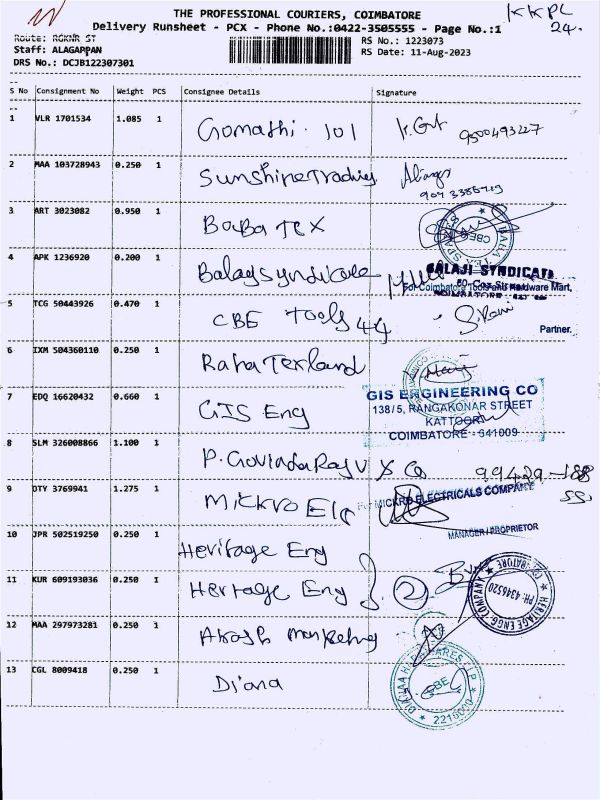 KKPL
24.
THE PROFESSIONAL COURIERS, COIMBATORE
Delivery Runsheet - PCX - Phone No.:0422-3505555 - Page No.:1
Route: RGKNR ST
Staff: ALAGAPPAN
RS No.: 1223073
DRS No.: DCJB122307301
RS Date: 11-Aug-2023
S No Consignment No Weight PCS Consignee Details Signature
1 VLR 1701534 1.085 1 Gomathi. 101
2 MAA 103728943 0.250 1 Sunshine Trading
3 ART 3023082 0.950 1 BaBa TEX
CBE
4 APK 1236920 0.200 1 Balaji syndicate
BALAJI SYNDICATE
For Coimbatore Tools and Hardware Mart,
5 TCG 50443926 0.470 1 CBE Tools 44
Partner.
6 IXM 504360110 0.250 1
7 EDQ 16620432 0.660 1 GIS Eng
GIS ENGINEERING CO
138/5, RANGAKONAR STREET
KATTOOR
COIMBATORE - 641009
8 SLM 326008866 1.100 1 P. Govindaraju & Co 99429-188
55.
9 DTY 3769941 1.275 1 Mickro Ele
For MICKRO ELECTRICALS COMPANY
MANAGER / PROPRIETOR
10 JPR 502519250 0.250 1 Heritage Eng
11 KUR 609193036 0.250 1 Heritage Eng 2
HERITAGE ENGG. COMPANY
PH: 4346520
12 MAA 297973281 0.250 1 Akash Marketing
13 CGL 8009418 0.250 1 Diana
CBE